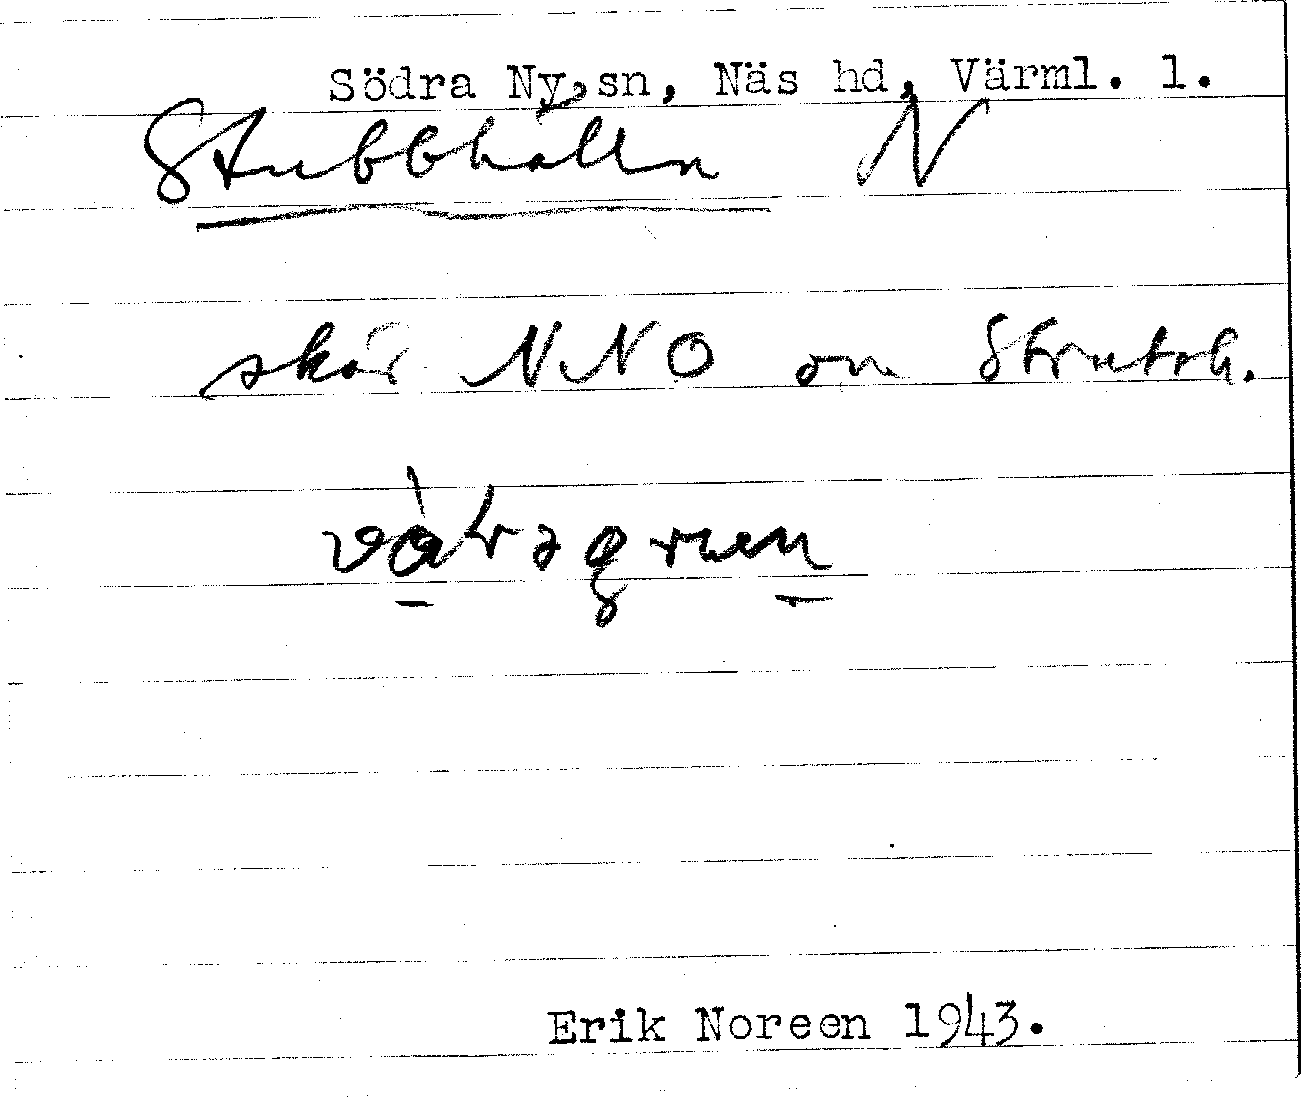 Södra Ny,sn, Näs hd, Värml. l.
Stubbhälln N
skär NNO om Strutsh.
Erik Noreen 1943.